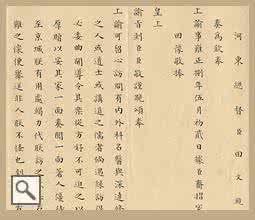 河東總督臣田文鏡
奏為欽奉
上諭事雍正捌年伍月初貳日據臣齎摺家
回保敬捧
皇上
諭旨到臣臣敬謹跪讀奉
上諭可留心訪問有內外科名醫與深達修
之人或道士或講道之儒者倘遇緣訪得
必委曲開導令其樂從方好不可迫之以
厚贈以安其家一面奏聞一面著人優待
至京城朕有用處竭力代朕訪之
難之懷便薦送非人朕不怪也